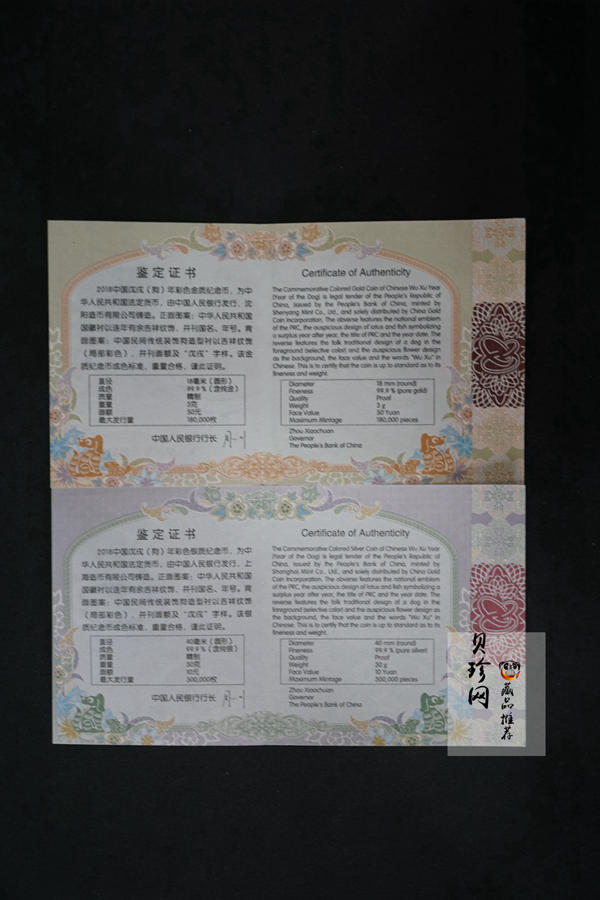 鉴定证书
2018中国戊戌（狗）年彩色金质纪念币，为中
华人民共和国法定货币，由中国人民银行发行，沈
阳造币有限公司铸造。正面图案：中华人民共和国
国徽衬以连年有余吉祥纹饰，并刊国名、年号。背
面图案：中国民间传统装饰狗造型衬以吉祥纹饰
（局部彩色），并刊面额及“戊戌”字样。该金
质纪念币成色标准，重量合格，谨此证明。
直径 18毫米（圆形）
成色 99.9％（含纯金）
质量 精制
重量 3克
面额 50元
最大发行量 180,000枚
中国人民银行行长
Certificate of Authenticity
The Commemorative Colored Gold Coin of Chinese Wu Xu Year
(Year of the Dog) is legal tender of the People's Republic of
China, issued by the People's Bank of China, minted by
Shenyang Mint Co., Ltd., and solely distributed by China Gold
Coin Incorporation. The obverse features the national emblem
of the PRC, the auspicious design of lotus and fish symbolizing
a surplus year after year, the title of PRC and the year date. The
reverse features the folk traditional design of a dog in the
foreground (selective color) and the auspicious flower design
as the background, the face value and the words "Wu Xu" in
Chinese. This is to certify that the coin is up to standard as to its
fineness and weight.
Diameter 18 mm (round)
Fineness 99.9 % (pure gold)
Quality Proof
Weight 3 g
Face Value 50 Yuan
Maximum Mintage 180,000 pieces
Zhou Xiaochuan
Governor
The People's Bank of China
鉴定证书
2018中国戊戌（狗）年彩色银质纪念币，为中
华人民共和国法定货币，由中国人民银行发行，上
海造币有限公司铸造。正面图案：中华人民共和国
国徽衬以连年有余吉祥纹饰，并刊国名、年号。背
面图案：中国民间传统装饰狗造型衬以吉祥纹饰
（局部彩色），并刊面额及“戊戌”字样。该银
质纪念币成色标准，重量合格，谨此证明。
直径 40毫米（圆形）
成色 99.9％（含纯银）
质量 精制
重量 30克
面额 10元
最大发行量 300,000枚
中国人民银行行长
Certificate of Authenticity
The Commemorative Colored Silver Coin of Chinese Wu Xu Year
(Year of the Dog) is legal tender of the People's Republic of
China, issued by the People's Bank of China, minted by
Shanghai Mint Co., Ltd., and solely distributed by China Gold
Coin Incorporation. The obverse features the national emblem
of the PRC, the auspicious design of lotus and fish symbolizing a
surplus year after year, the title of PRC and the year date. The
reverse features the folk traditional design of a dog in the
foreground (selective color) and the auspicious flower design as
the background, the face value and the words "Wu Xu" in
Chinese. This is to certify that the coin is up to standard as to its
fineness and weight.
Diameter 40 mm (round)
Fineness 99.9 % (pure silver)
Quality Proof
Weight 30 g
Face Value 10 Yuan
Maximum Mintage 300,000 pieces
Zhou Xiaochuan
Governor
The People's Bank of China
贝珍网
藏品推荐